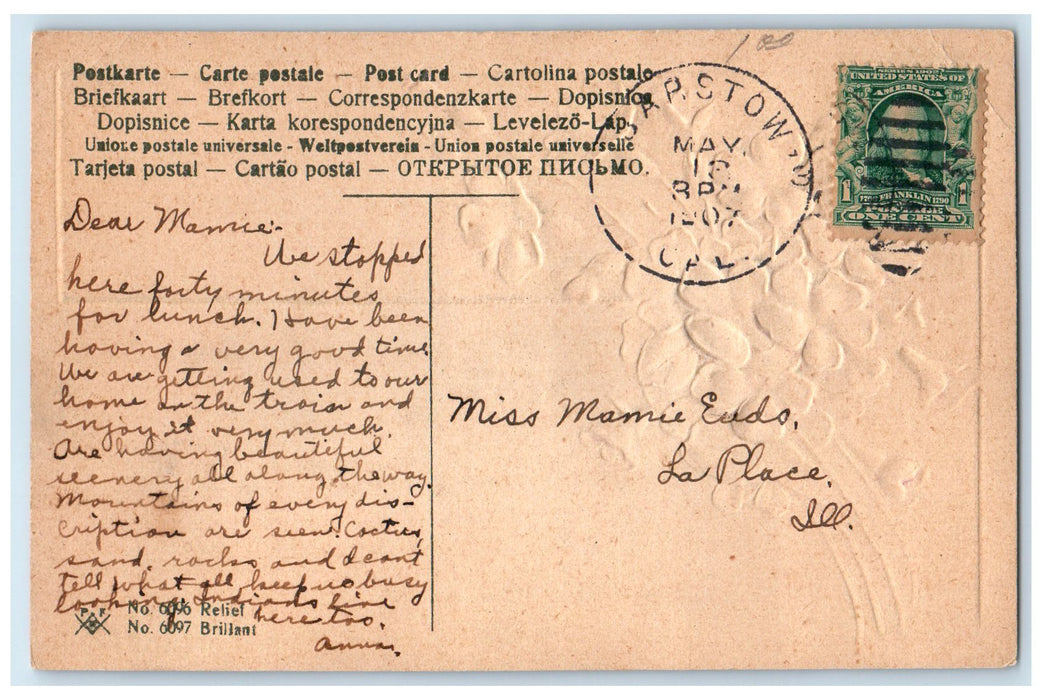 Postkarte — Carte postale — Post card — Cartolina postale
Briefkaart — Brefkort — Correspondenzkarte — Dopisnica
Dopisnice — Karta korespondencyjna — Levelezö-Lap.
Unione postale universale - Weltpostverein - Union postale universelle
Tarjeta postal — Cartão postal — ОТКРЫТОЕ ПИСЬМО.
BARSTOW,
MAY
8 PM
1907
CAL.
SERIES 1902
UNITED STATES OF
AMERICA
1
FRANKLIN 1790
ONE CENT
Dear Mamie:-
We stopped
here forty minutes
for lunch. I have been
having a very good time.
We are getting used to our
home on the train and
enjoy it very much.
Are having beautiful
scenery all along the way.
Mountains of every dis-
cription are seen. Cactus,
sand, rocks and I cant
tell what all keep us busy
looking. Indians live
here too.
Anna.
Miss Mamie Euds,
La Place,
Ill.
P F
No. 6096 Relief
No. 6097 Brillant